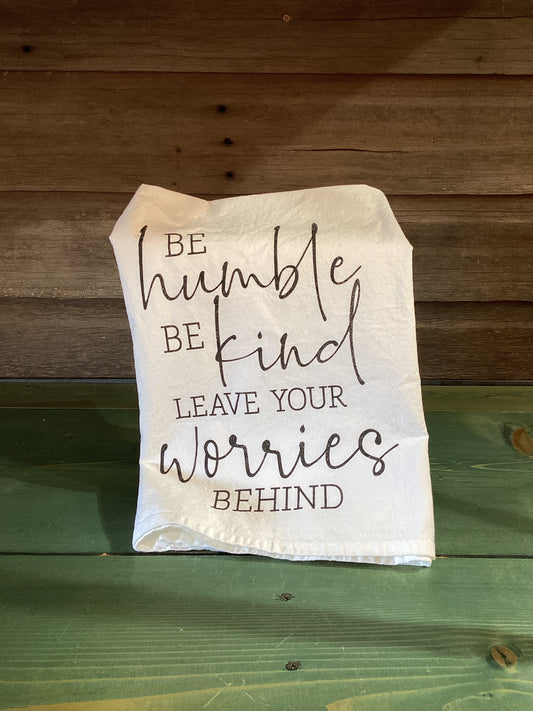 BE
humble
BE kind
LEAVE YOUR
worries
BEHIND